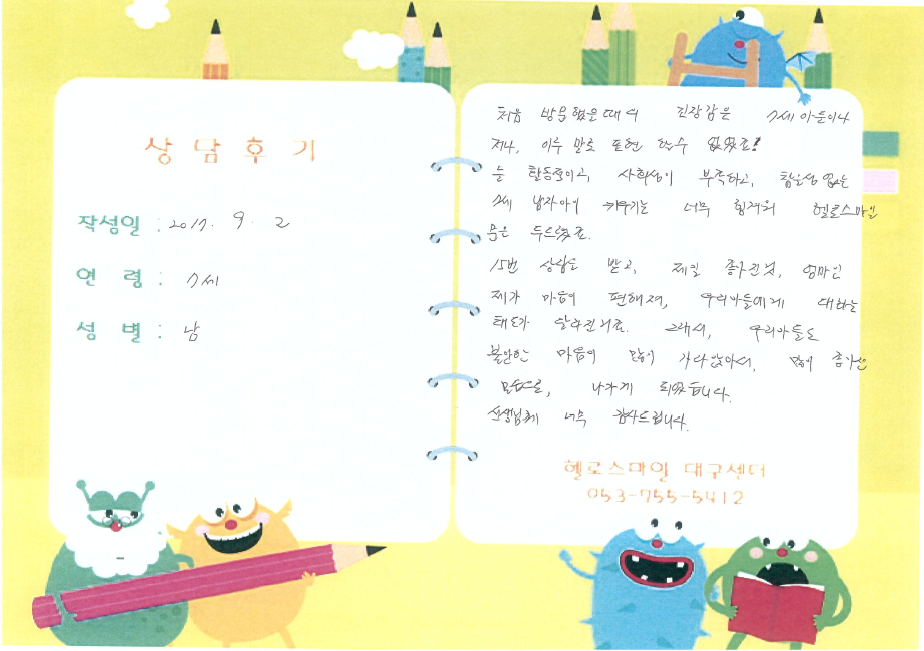 상 담 후 기
작성일 : 2017. 9. 2
연 령 : 7세
성 별 : 남
처음 방문했을때의 긴장감은 7세아들이나
저나, 이루 말로 표현 할수 없었죠!
늘 활동적이고, 사회성이 부족하고, 참을성 없는
7세 남자아이 키우기는 너무 힘겨워 헬로스마일
문을 두드렸죠.
15번 상담도 받고, 제일 좋아진것, 엄마인
제가 마음이 편해져, 우리아들에게 대하는
태도가 달라진거죠. 그래서, 우리아들도
불안한 마음이 많이 가라앉아서, 많이 좋아진
모습으로, 나가게 되었습니다.
선생님께 너무 감사드립니다.
헬로스마일 대구센터
053-755-5412